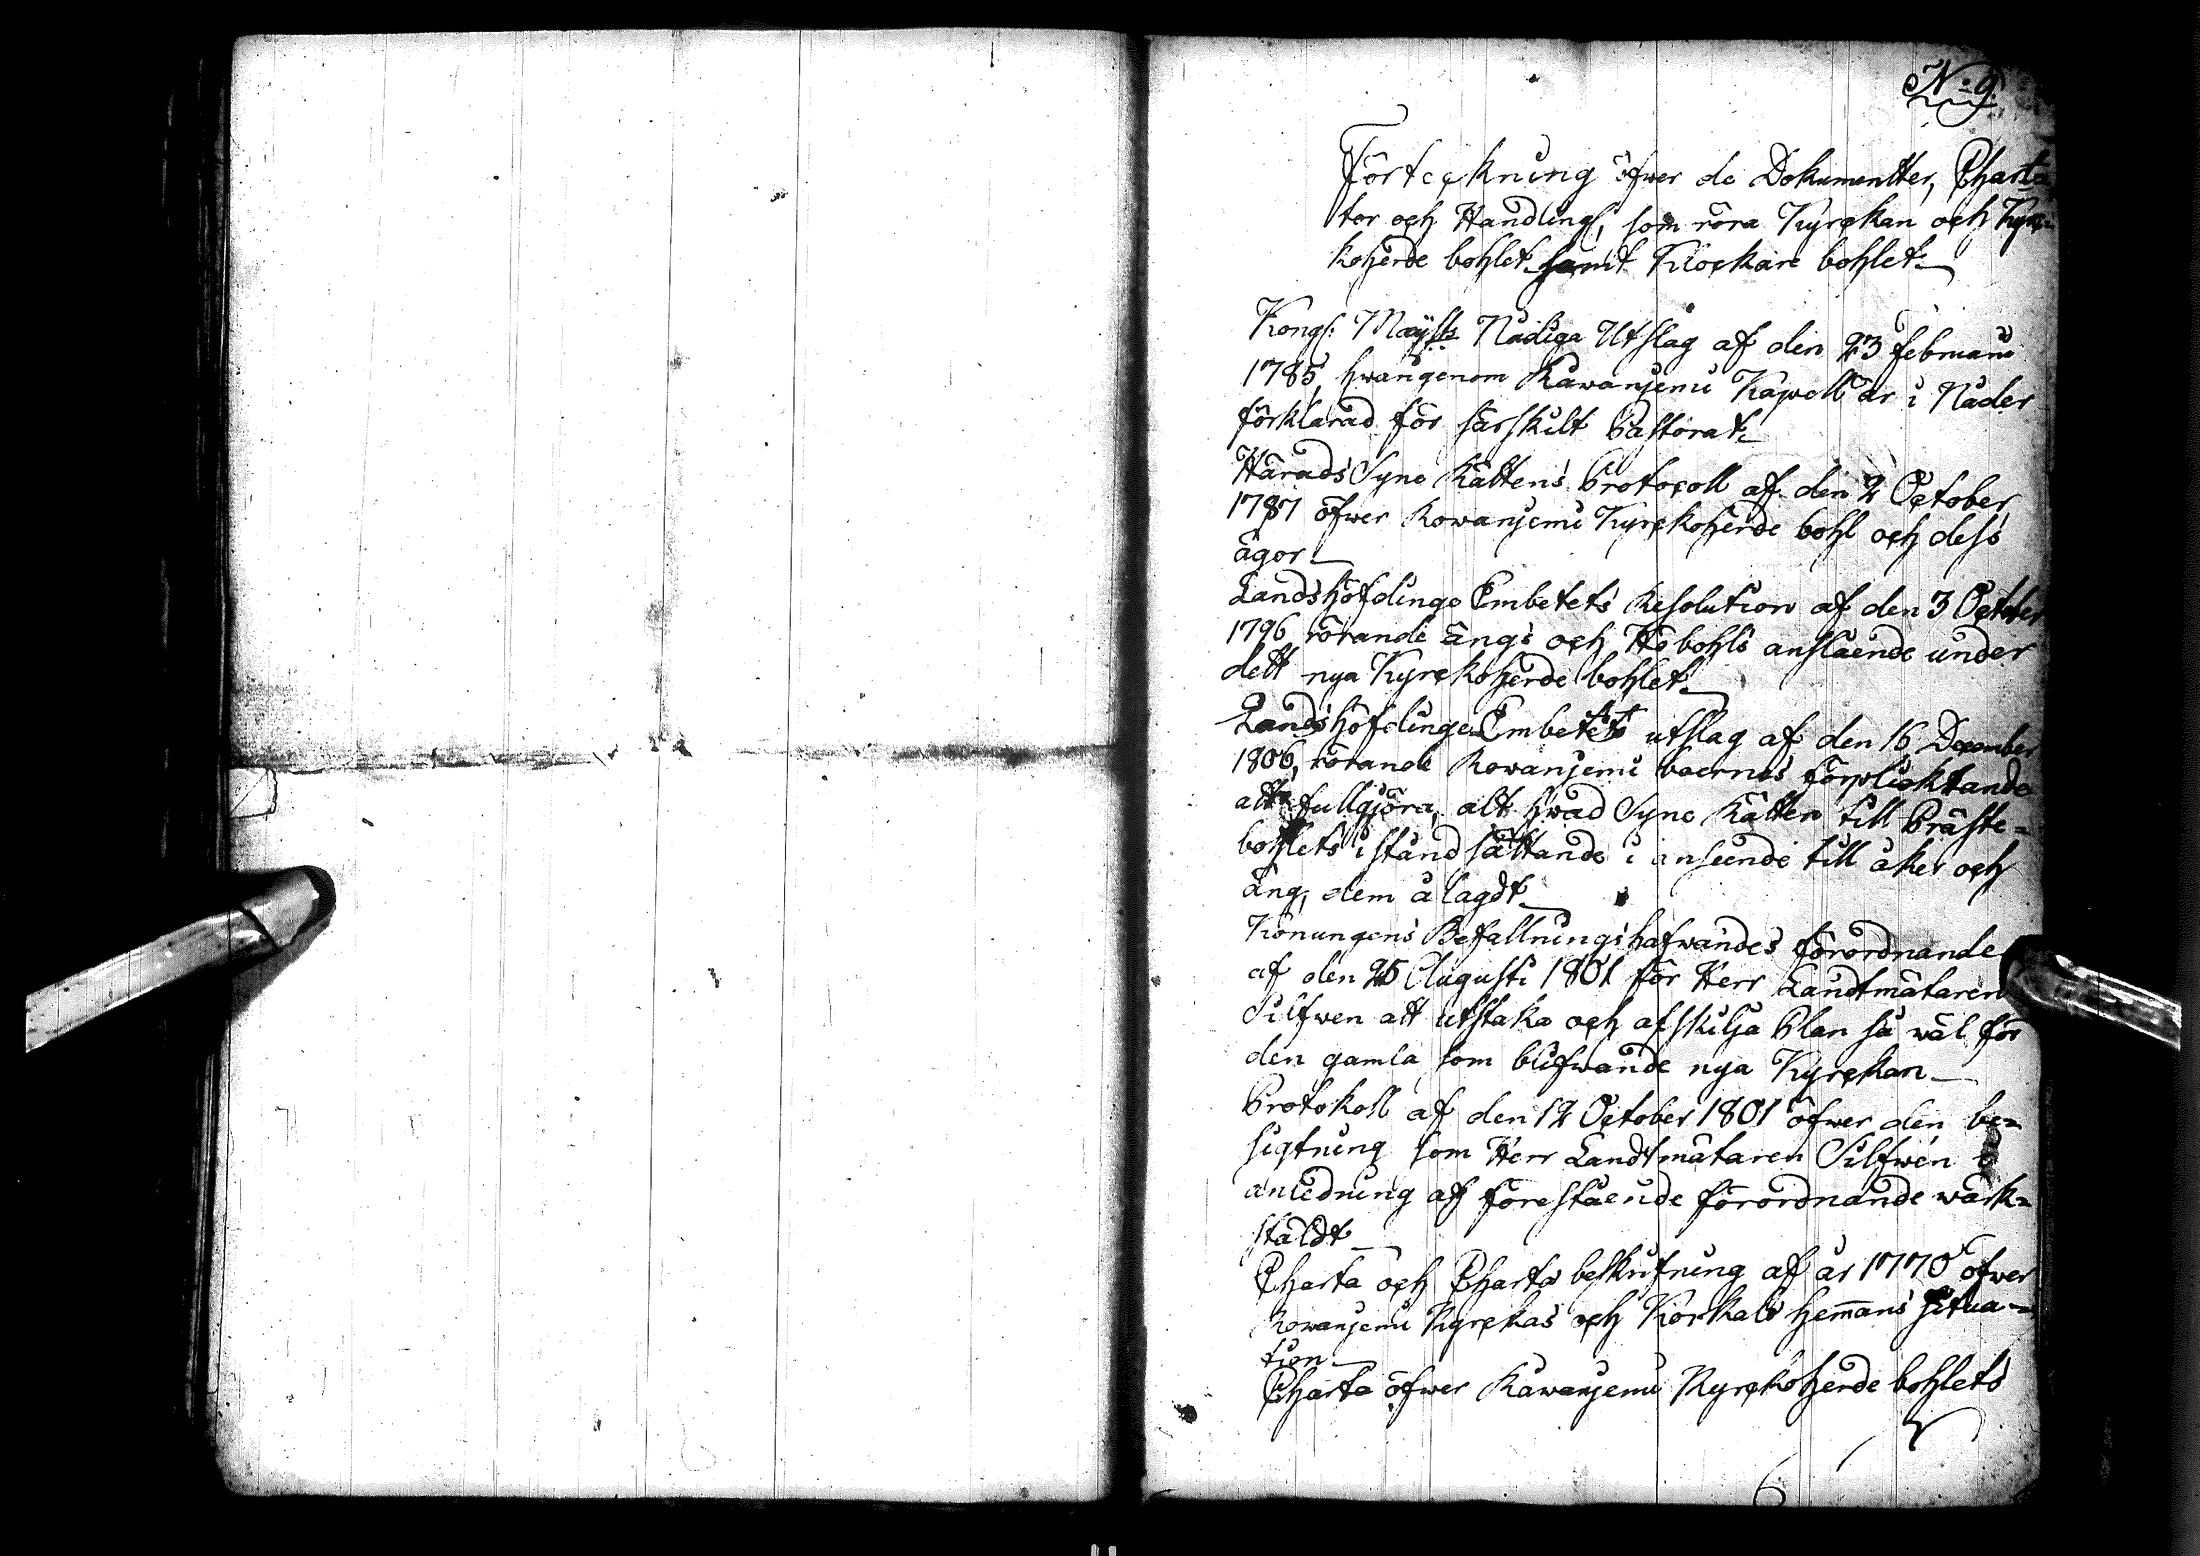 N:9.
Förteckning öfwer de Dokumentter, Charta
tor och Handling:, som röra Kyrckan och Kyr-
koherde bohlet samt Klockare bohlet.
Kongl: Maÿsts Nådiga Utslag af den 23 februarii
1785, hwarigenom Råwanjemi Kapell är i Nåder
förklarad för särskilt Pastorat.
Härads Syne Rättens Protocoll af den 2 October
1787 öfwer Rowanjemi Kyrckoherde bohl och dess
ägor.
Landshöfdinge Embetets Resolution af den 3 October
1796, rörande ängs och Höbohls anslående under
dett nya Kyrckoherde bohlet.
Landshöfdinge Embetets utslag af den 16 December
1806, rörande Rowanjemi boernes förplicktande
att fullgjöra, alt hwad Syne Rätten till Präste-
bohlets i ständ sättande i anseende till åker och
äng, dem ålagdt.
Konungens Befallningshafwandes förordnande
af den 25 Augusti 1801 för Herr Landtmätaren
Silfwen att utstaka och afskilja Plan så wäl för
den gamla, som blifwande nya Kyrckan
Protokoll af den 12 October 1801 öfwer den be-
sigtning som Herr Landtmätaren Silfwén i
anledning af förestående förordnande wärk-
stäldt
Charta och Charta beskrifning af år 1770 öfwer
Rowanjemi Kyrckas och Korkalo hemans situa-
tion
Charta öfwer Råwanjemi Kyrckoherde bohlets